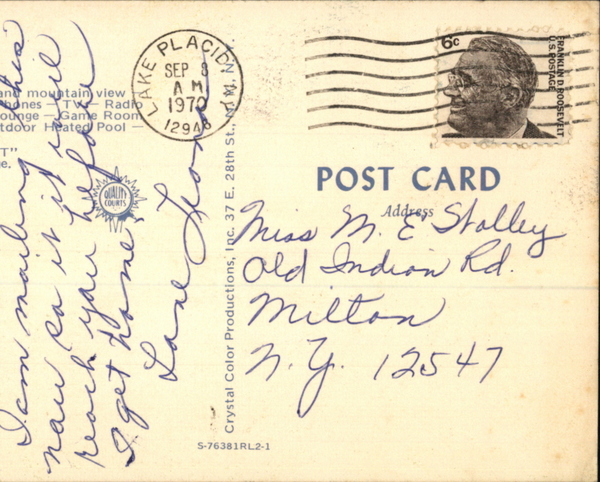 and mountain view
ones — TV — Radio
ounge — Game Room
tdoor Heated Pool —
T"
e.
QUALITY
COURTS
I am mailing this
now so it will
reach you before
I get home.
Love
LAKE PLACID N.Y.
SEP 8
A M
1970
12946
6c
FRANKLIN D. ROOSEVELT
U.S. POSTAGE
POST CARD
Address
Miss M. E. Stalley
Old Indian Rd.
Milton
N.Y. 12547
Crystal Color Productions, Inc. 37 E. 28th St., N.Y., N.Y.
S-76381RL2-1